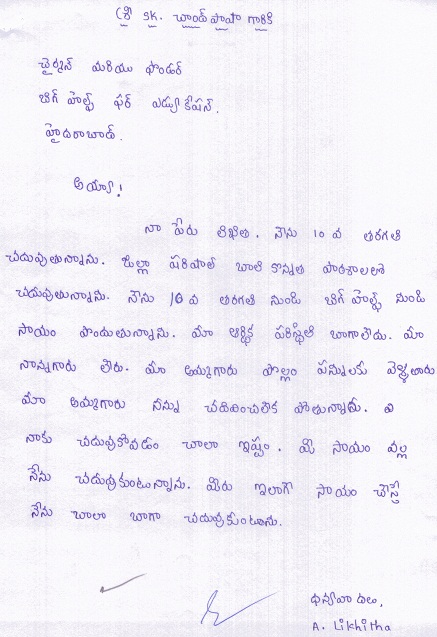 శ్రీ SK. చాంద్ పాషా గారికి
చైర్మన్ మరియు ఫౌండర్
బిగ్ హెల్ప్ ఫర్ ఎడ్యుకేషన్.
హైదరాబాద్.
అయ్యా!
నా పేరు లిఖిత. నేను 10 వ తరగతి
చదువుతున్నాను. జిల్లా పరిషత్ బాలి కొన్నత పాఠశాలలో
చదువుతున్నాను. నేను 10 వ తరగతి నుండి బిగ్ హెల్ప్ నుండి
సాయం పొందుతున్నాను. మా ఆర్థిక పరిస్థితి బాగాలేదు. మా
నాన్నగారు లేరు. మా అమ్మగారు పొల్లం పన్నులకు వెళ్ళతారు
మా అమ్మగారు నన్ను చదివించలేక పోతున్నారు.
నాకు చదువుకోవడం చాలా ఇష్టం. మీ సాయం వల్ల
నేను చదువుకుంటున్నాను. మీరు ఇలాగే సాయం చేస్తే
నేను చాలా బాగా చదువుకుంటాను.
ధన్యవాదాలు,
A. Likhitha